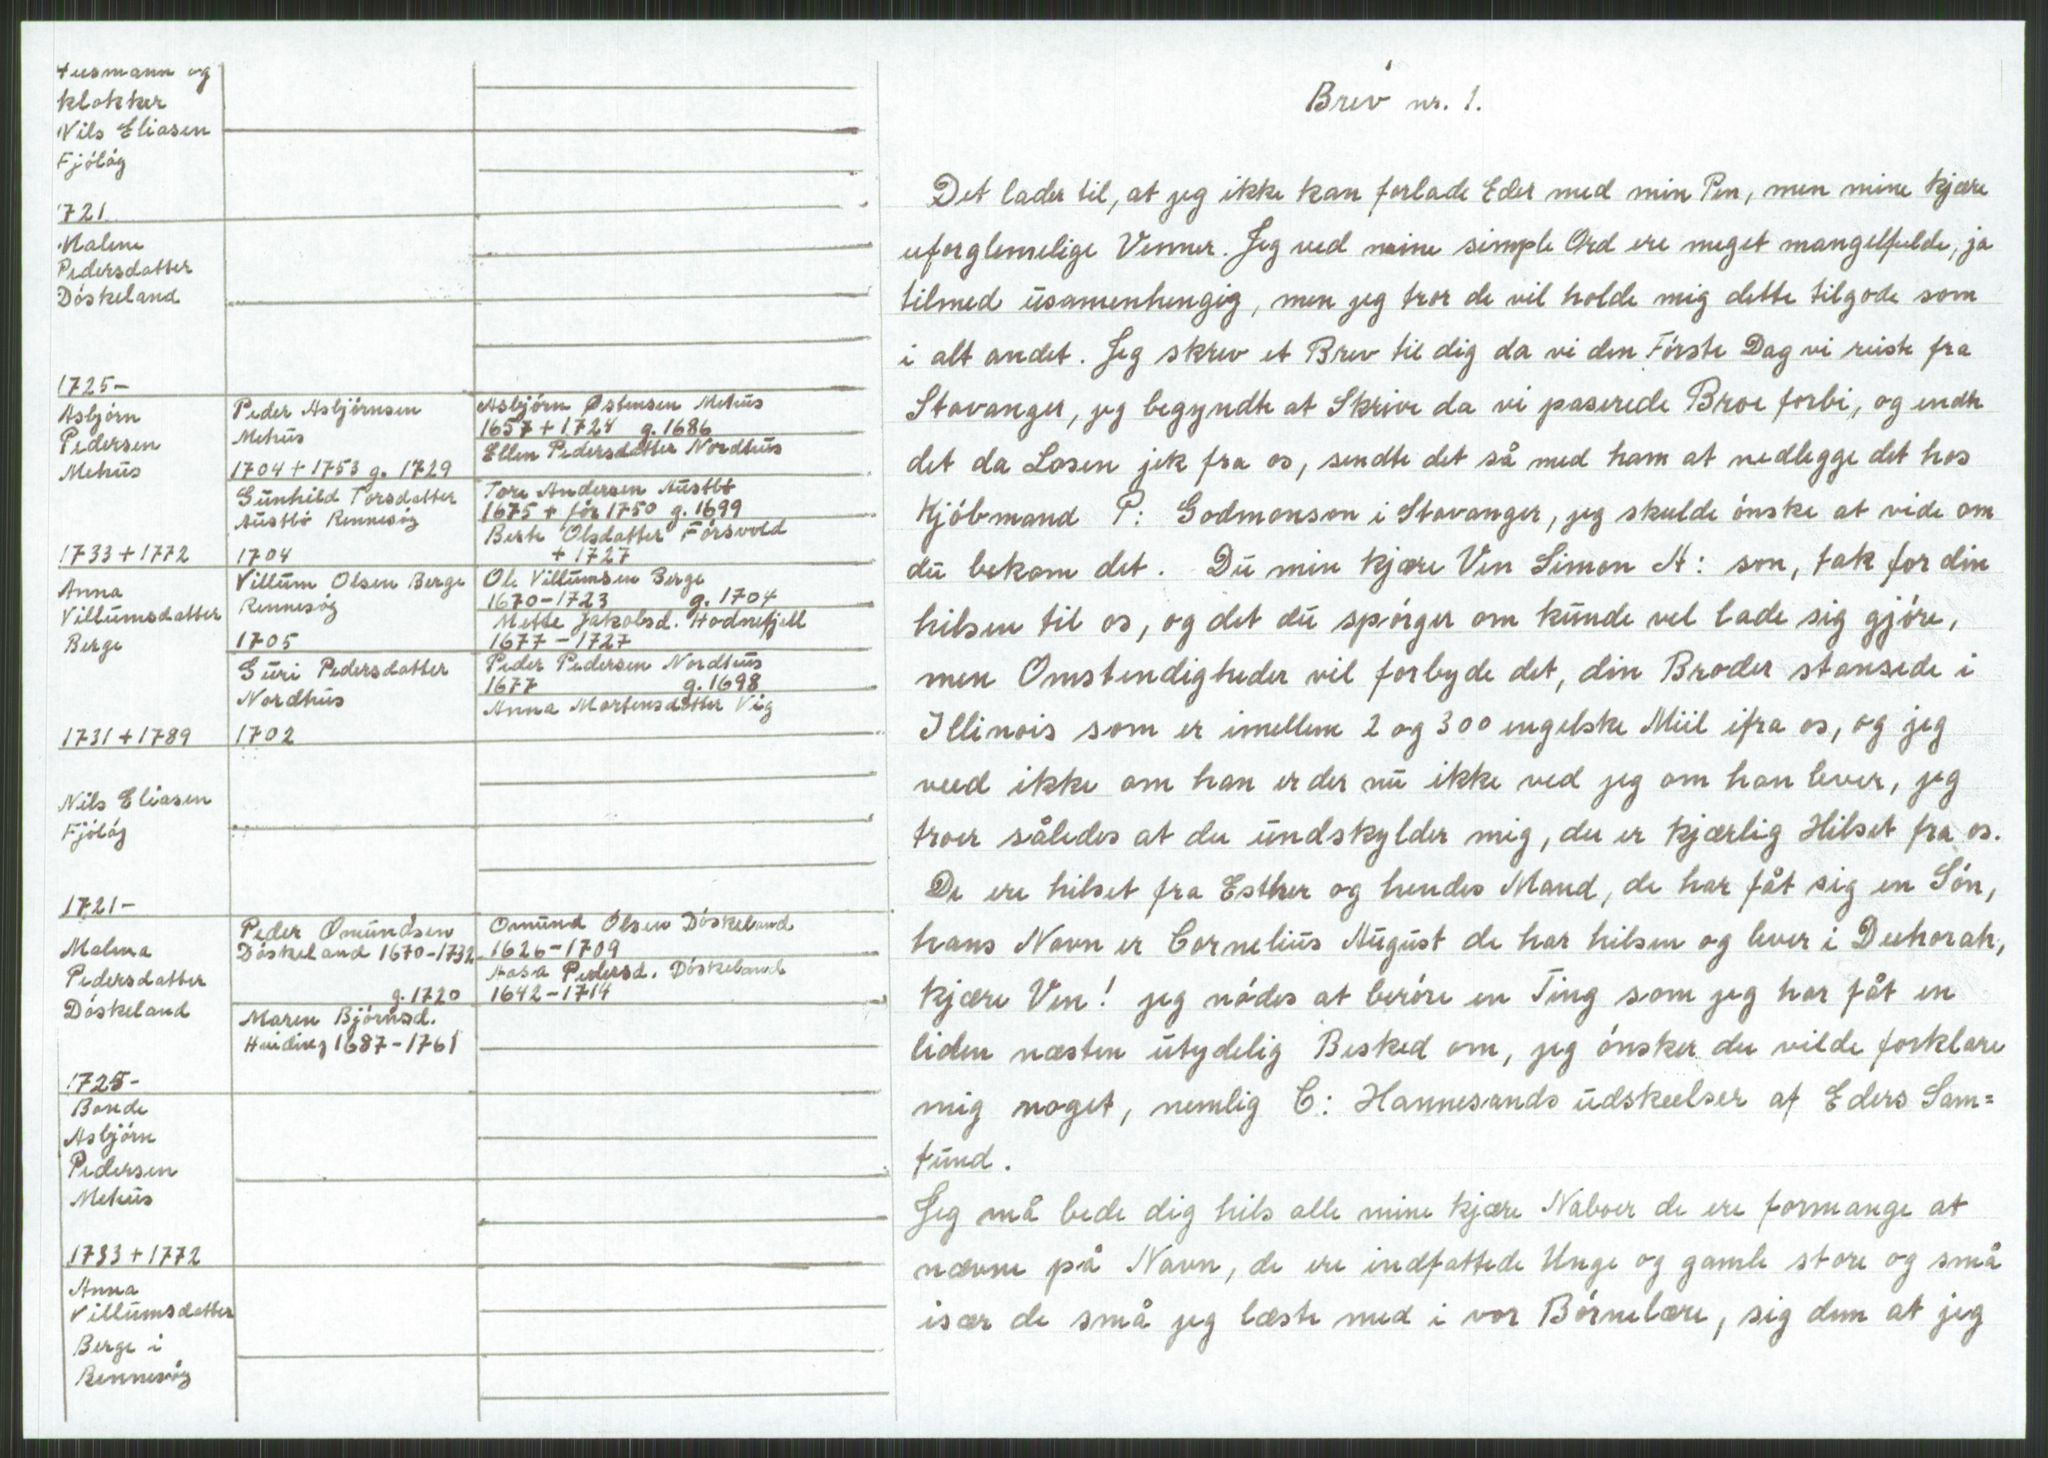 Husmann og
klokker
Nils Eliasen
Fjölög
1721
Malene
Pedersdatter
Döskeland
1725-
Asbjörn
Pedersen
Mehus
1733 + 1772
Anna
Villumsdatter
Berge
1731 + 1789
Nils Eliasen
Fjölög
1721-
Malena
Pedersdatter
Döskeland
1725-
Bonde
Asbjörn
Pedersen
Mehus
1733 + 1772
Anna
Villumsdatter
Berge i
Rennesög
Peder Asbjörnsen
Mehus
1704 + 1753 g. 1729
Gunhild Torsdatter
Austbö Rennesög
1704
Villum Olsen Berge
Rennesög
1705
Guri Pedersdatter
Nordhus
1702
Peder Omundsen
Döskeland 1670-1732
g. 1720
Maren Björnsd.
Hviding 1687-1761
Asbjörn Østensen Mehus
1657 + 1724 g. 1686
Ellen Pedersdatter Nordhus
Tore Andersen Austbö
1675 + för 1750 g. 1699
Berte Olsdatter Försvold
+ 1727
Ole Villumsen Berge
1670-1723 g. 1704
Mette Jakobsd. Hodnefjell
1677-1727
Peder Pedersen Nordhus
1677 g. 1698
Anna Mortensdatter Vig
Omund Olsen Döskeland
1626-1709
Aasa Pedersd. Döskeland
1642-1714
Brev nr. 1.
Det lader til, at jeg ikke kan forlade Eder med min Pen, men mine kjære
uforglemelige Venner. Jeg ved mine simple Ord ere meget mangelfulde, ja
tilmed usamenhengig, men jeg tror de vil holde mig dette tilgode som
i alt andet. Jeg skrev et Brev til dig da vi den Förste Dag vi reiste fra
Stavanger, jeg begyndte at Skrive da vi paserede Broe forbi, og endte
det da Losen jek fra os, sendte det så med ham at nedlegge det hos
Kjöbmand P: Godmonson i Stavanger, jeg skulde önske at vide om
du bekom det. Du min kjære Ven Simon A: son, tak for din
hilsen til os, og det du spörger om kunde vel lade sig gjöre,
men Omstendigheder vil forbyde det, din Broder stansede i
Illinois som er imellem 2 og 300 engelske Miil ifra os, og jeg
veed ikke om han er der nu ikke ved jeg om han lever, jeg
troer således at du undskylder mig, du er kjærlig Hilset fra os.
De ere hilset fra Esther og hendes Mand, de har fåt sig en Sön,
hans Navn er Cornelius August de har hilsen og lever i Duhorah,
kjære Ven! jeg nödes at beröre en Ting som jeg har fåt en
liden næsten utydelig Besked om, jeg önsker du vilde forklare
mig noget, nemlig C: Hannesands udskeelser af Eders Sam=
fund.
Jeg må bede dig hils alle mine kjære Naboer de ere formange at
nævne på Navn, de ere indfattede Unge og gamle store og små
især de små jeg læste med i vor Börnelære, sig dem at jeg